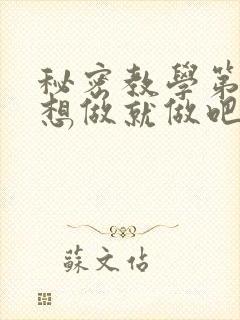 秘密教學第
想做就做吧
蘇文佔